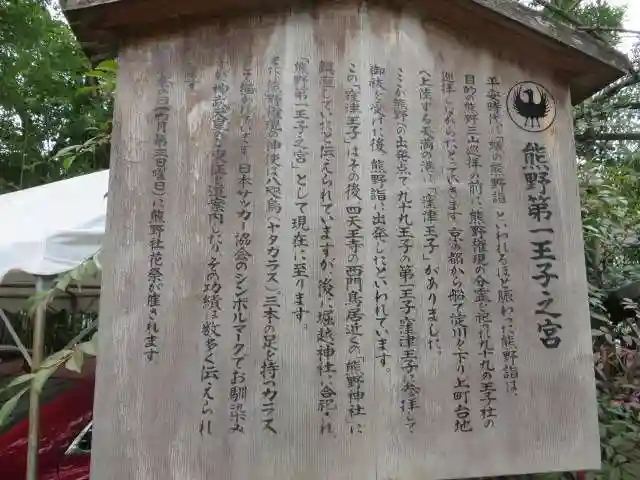 熊野第一王子之宮
平安時代に「蟻の熊野詣」といわれるほど賑わった熊野詣は、
目的の熊野三山巡拝の前に、熊野権現の分霊を祀る九十九の王子社の
巡拝しながらたどっていきます。京の都から船で淀川を下り上町台地
へ上陸する天満の港に「窪津王子」がありました。
ここが熊野への出発点で九十九王子の第一王子・窪津王子に参拝して、
御祓を受けた後、熊野詣に出発したといわれています。
この「窪津王子」はその後、四天王寺の西門鳥居近くの「熊野神社」に
鎮座していたと伝えられていますが、後に堀越神社に合祀され、
「熊野第一王子之宮」として現在に至ります。
熊野権現の神使は八咫烏(ヤタガラス)三本の足を持つカラス
で描かれています。日本サッカー協会のシンボルマークでお馴染み
神武天皇を 道案内したりその功績は数多く伝えられ
ます。
(四月第三日曜日)に熊野社花祭が催されます